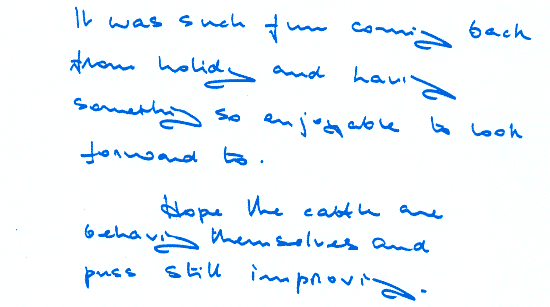 It was such fun coming back
from holiday and having
something so enjoyable to look
forward to.
Hope the cattle are
behaving themselves and
puss still improving.